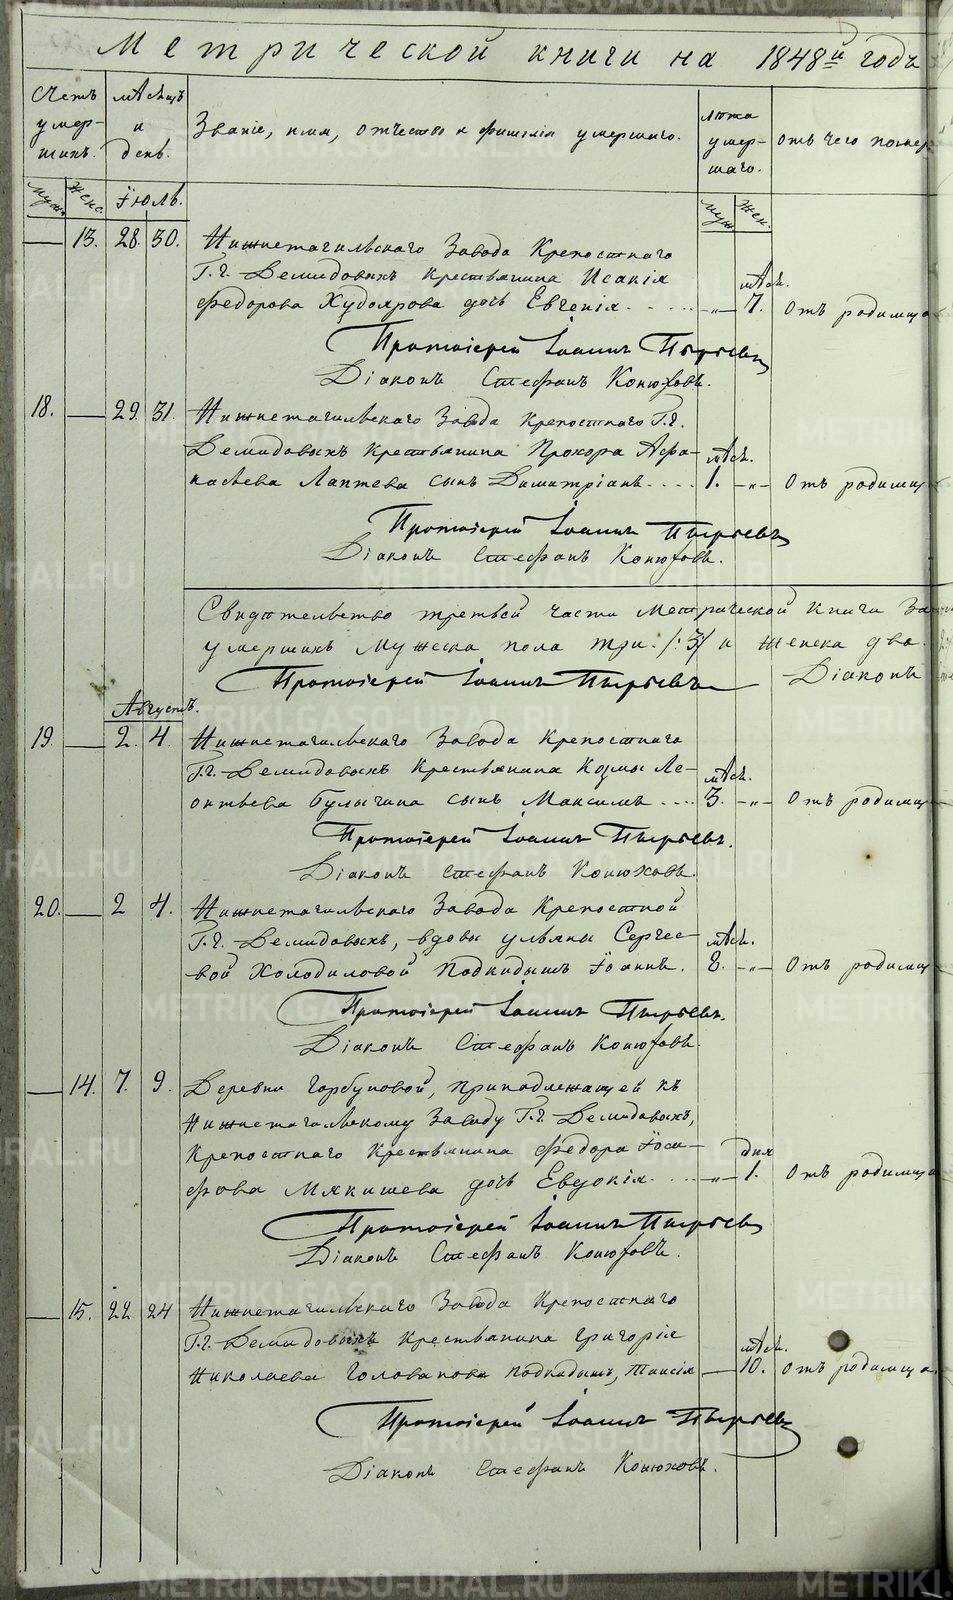 Метрической книги на 1848й годъ
Счетъ умершихъ.
мѣсяцъ и день.
Званіе, имя, отчество и фамилія умершаго.
лѣта умершаго.
отъ чего помер
муж. женс. Іюль.
муж. жен.
— 13. 28. 30. Нижнетагильскаго Завода Крепостнаго
Г.г. Демидовыхъ крестьянина Исакія мѣсе.
Федорова Худоярова дочь Евгенія. - - - - - „ - 7. отъ родимца
Протоіерей Іоаннъ Пырьевъ
Діаконъ Стефанъ Конюховъ.
18. — 29. 31. Нижнетагильскаго Завода Крепостнаго Г.г.
Демидовыхъ крестьянина Прохора Афа- мѣсе.
насьева Лаптева сынъ Димитріанъ. - - - 1. - „ - отъ родимц
Протоіерей Іоаннъ Пырьевъ
Діаконъ Стефанъ Конюховъ.
Свидѣтельство третьей части Метрической книги За
умершихъ мужеска пола три. /:3/ и женска два.
Протоіерей Іоаннъ Пырьевъ Діаконъ
Августъ.
19. — 2. 4. Нижнетагильскаго Завода Крепостнаго
Г.г. Демидовыхъ Крестьянина Козмы Ле- мѣсе.
онтьева Булычина сынъ Максимъ - - - - 3. - „ - отъ родимц
Протоіерей Іоаннъ Пырьевъ.
Діаконъ Стефанъ Конюховъ.
20. — 2 4. Нижнетагильскаго Завода Крепостной
Г.г. Демидовыхъ, вдовы Ульяны Сергее- мѣсе.
вой Холодиловой подкидышъ Іоаннъ. 8. - „ - отъ родимц
Протоіерей Іоаннъ Пырьевъ.
Діаконъ Стефанъ Конюховъ.
— 14. 7. 9. Деревни Горбуновой, принадлежащей къ
Нижнетагильскому Заводу Г.г. Демидовыхъ,
Крепостнаго крестьянина Федора Іоси- дня
фова Мякишева дочь Евдокія. - - - - „ - 1. отъ родимца
Протоіерей Іоаннъ Пырьевъ
Діаконъ Стефанъ Конюховъ.
— 15. 22 24 Нижнетагильскаго Завода Крепостнаго
Г.г. Демидовыхъ крестьянина Григорія мѣсе.
Николаева Голованова подкидышъ, Таисія — 10. отъ родимца.
Протоіерей Іоаннъ Пырьевъ
Діаконъ Стефанъ Конюховъ.
METRIKI.GASO-URAL.RU